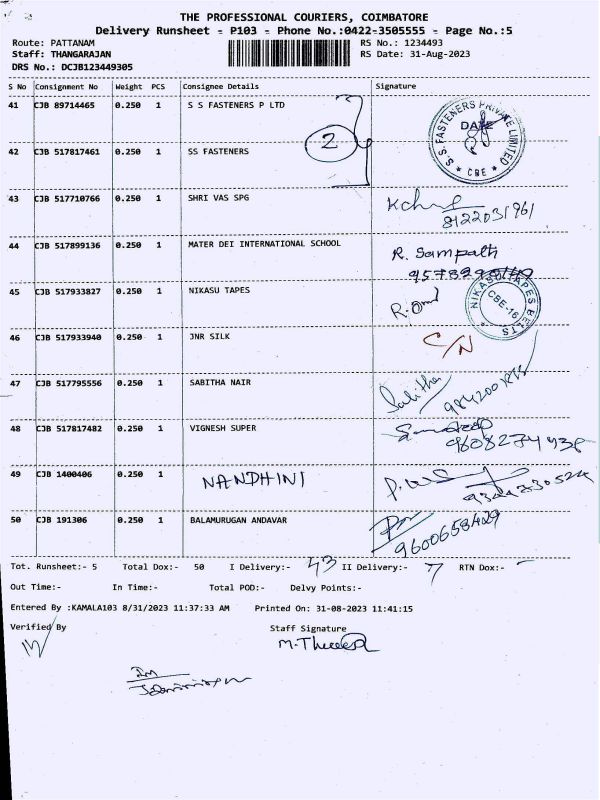 THE PROFESSIONAL COURIERS, COIMBATORE
Delivery Runsheet - P103 - Phone No.:0422-3505555 - Page No.:5
Route: PATTANAM RS No.: 1234493
Staff: THANGARAJAN RS Date: 31-Aug-2023
DRS No.: DCJB123449305
S No Consignment No Weight PCS Consignee Details Signature
41 CJB 89714465 0.250 1 S S FASTENERS P LTD
S. S. FASTENERS PRIVATE LIMITED * CBE *
DATE
2
42 CJB 517817461 0.250 1 SS FASTENERS
43 CJB 517710766 0.250 1 SHRI VAS SPG
8122031961
44 CJB 517899136 0.250 1 MATER DEI INTERNATIONAL SCHOOL R. Sampath
45 CJB 517933827 0.250 1 NIKASU TAPES
NIKASU TAPES BELTS
CBE-16
46 CJB 517933940 0.250 1 JNR SILK C/N
47 CJB 517795556 0.250 1 SABITHA NAIR Sabitha
48 CJB 517817482 0.250 1 VIGNESH SUPER
49 CJB 1400406 0.250 1 NANDHINI
50 CJB 191306 0.250 1 BALAMURUGAN ANDAVAR
9600658429
Tot. Runsheet:- 5 Total Dox:- 50 I Delivery:- 43 II Delivery:- 7 RTN Dox:- -
Out Time:- In Time:- Total POD:- Delvy Points:-
Entered By :KAMALA103 8/31/2023 11:37:33 AM Printed On: 31-08-2023 11:41:15
Verified By Staff Signature